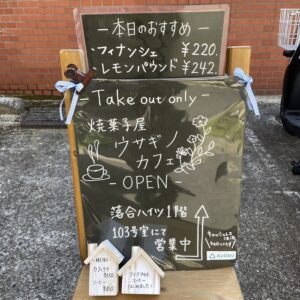 －本日のおすすめ－
・フィナンシェ ¥220.
・レモンパウンド ¥242.
－Take out only－
焼菓子屋
ウサギノ
カフェ
－OPEN－
落合ハイツ1階
103号室にて
営業中
－MENU－
コーヒー